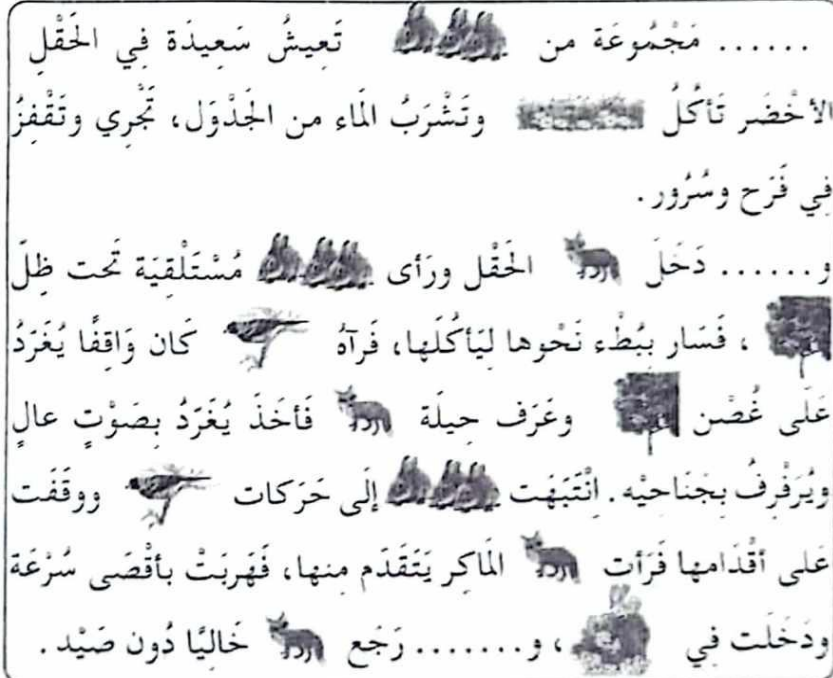 ...... مَجْمُوعَة من تَعِيشُ سَعِيدَة فِي الحَقْلِ
الأخْضَر تَأكُلُ وتَشْرَبُ المَاء من الجَدْوَل، تَجْرِي وتَقْفِزُ
فِي فَرَح وسُرُور.
و...... دَخَلَ الحَقْل ورَأى مُسْتَلْقِيَة تَحت ظِلّ
، فَسَار بِبُطْء نَحْوها لِيَأكُلَها، فَرآهُ كَان وَاقِفًا يُغَرّدُ
عَلَى غُصْن وعَرَف حِيلَة فَأخَذَ يُغَرّدُ بِصَوْتٍ عالٍ
ويُرَفْرِفُ بِجَنَاحيْه. اِنْتَبَهَت إلَى حَرَكات ووقَفَت
عَلى أقْدَامها فَرَأت المَاكِر يَتَقَدّم مِنها، فَهَربَتْ بأقْصَى سُرْعَة
ودَخَلَت فِي ، و....... رَجَع خَاليًا دُون صَيْد.